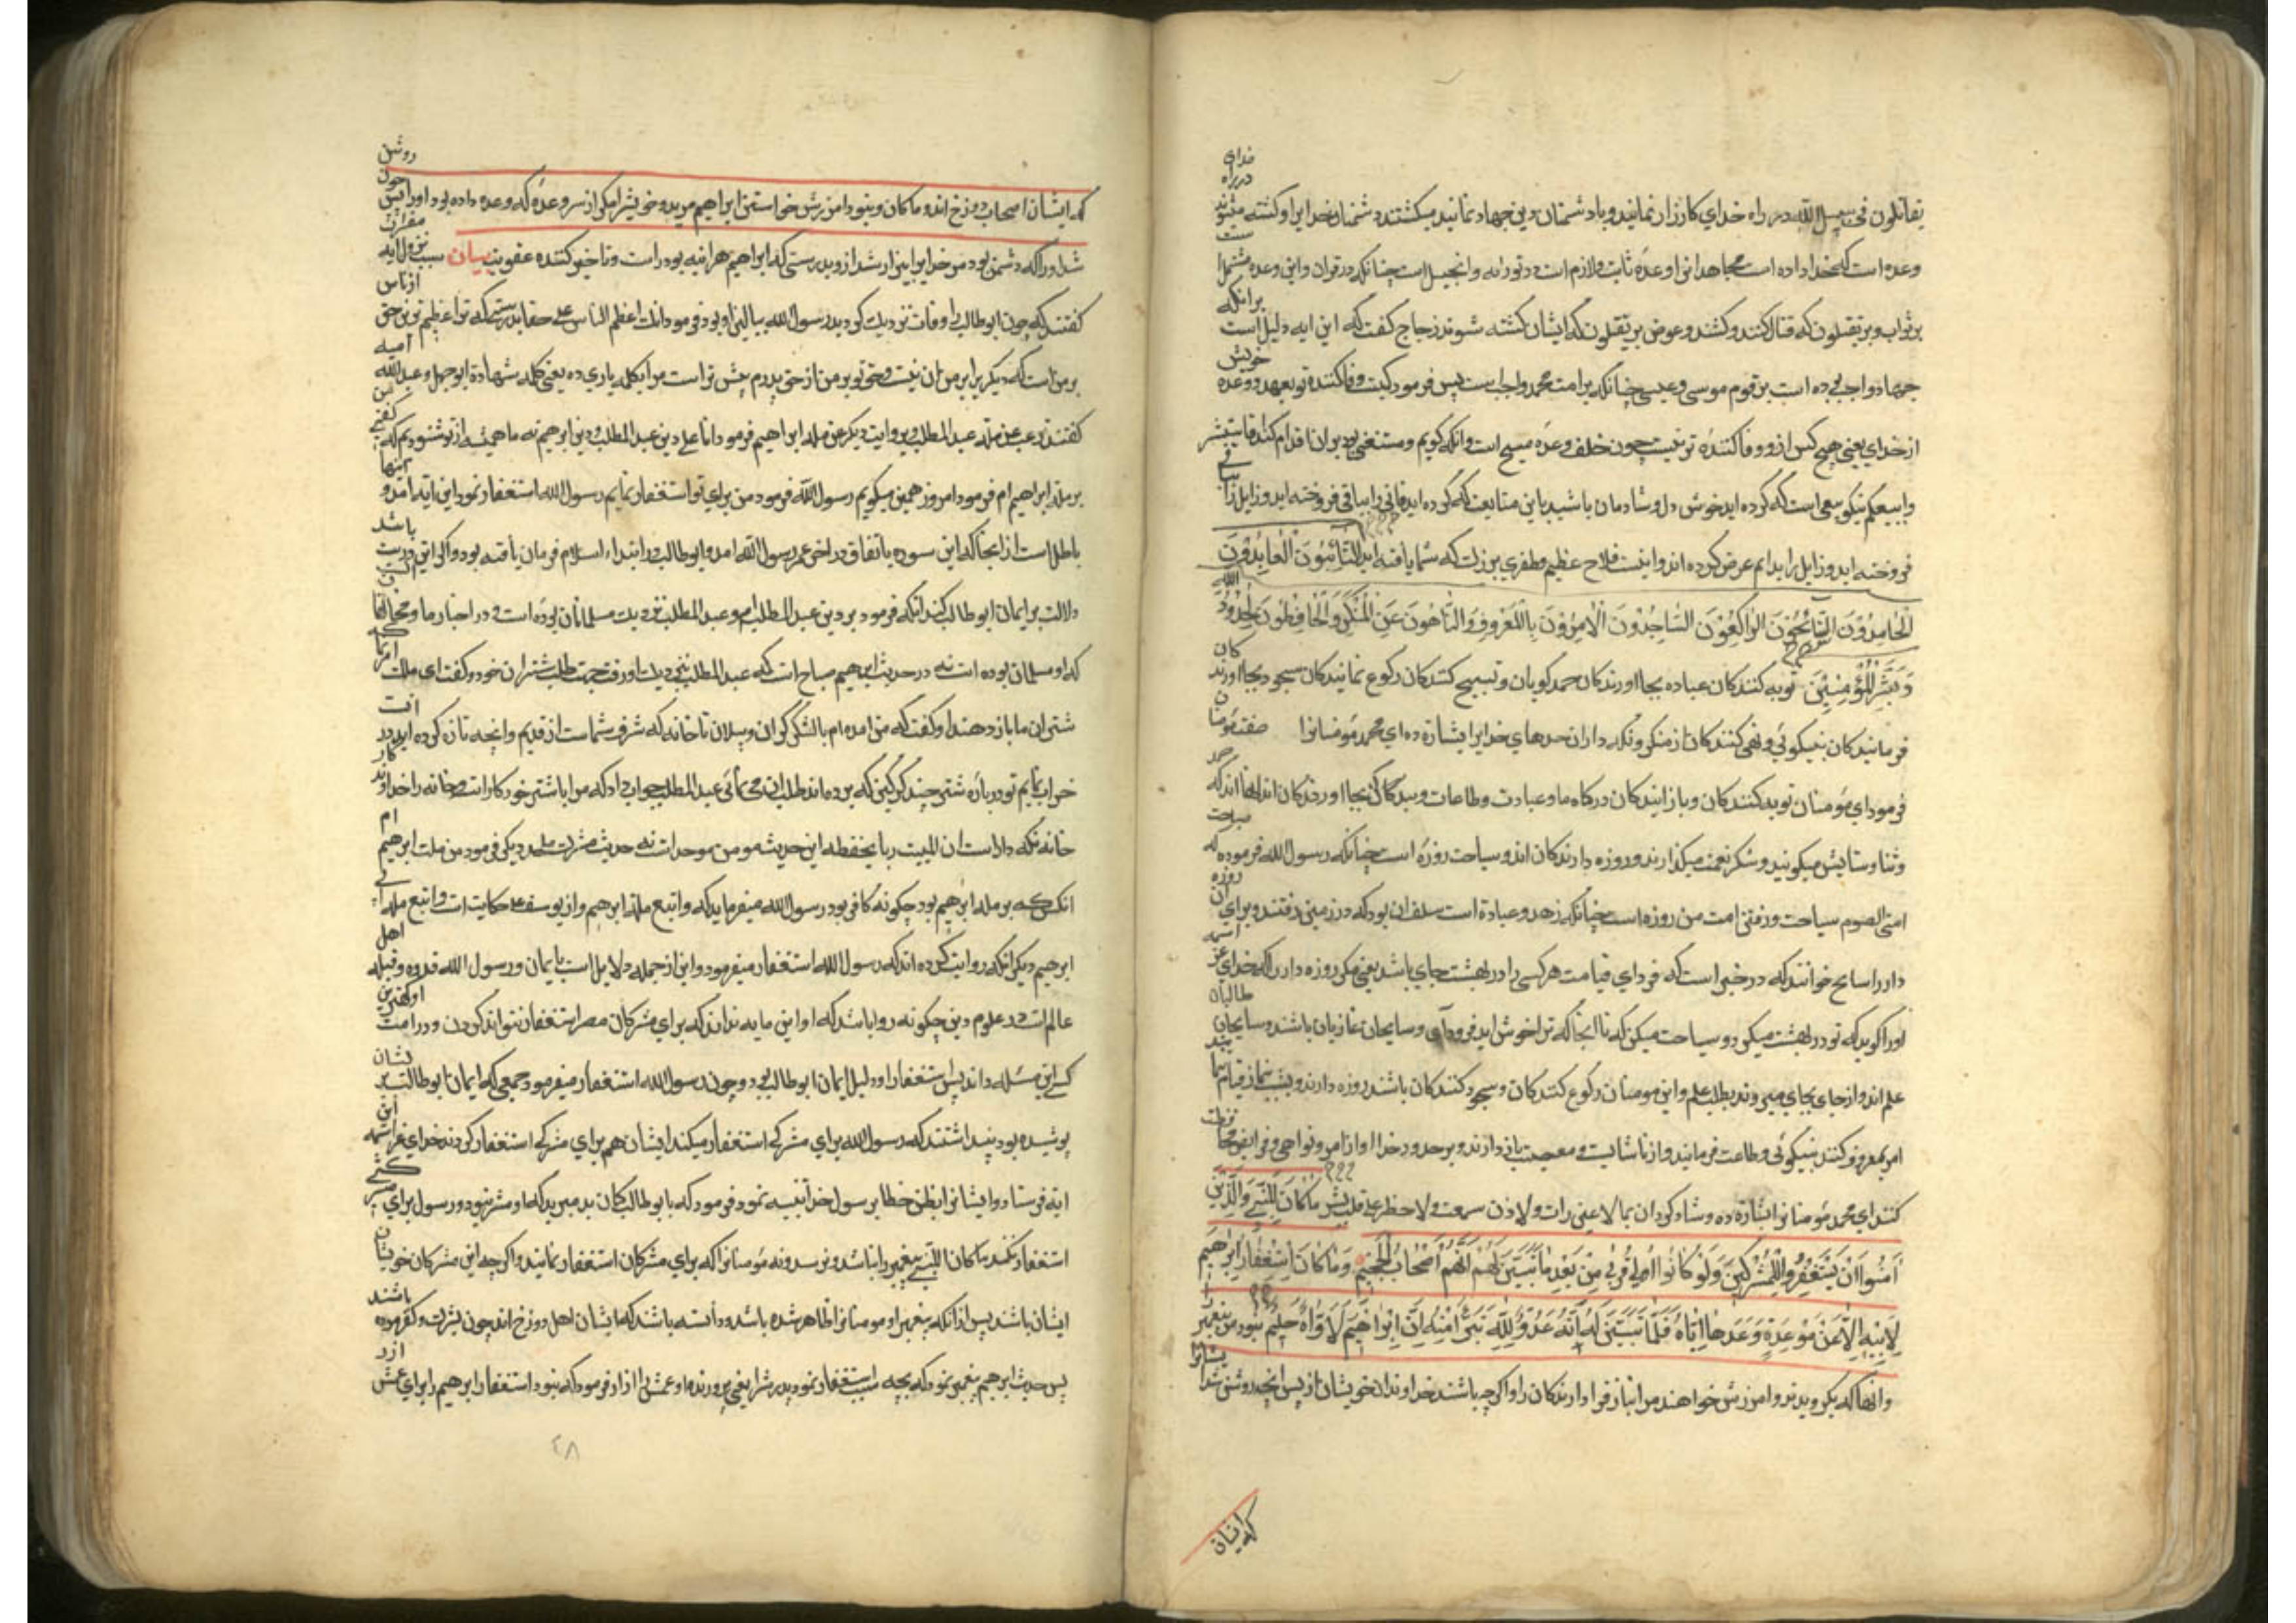 یقاتلون فی سبیل الله در راه خدای کارزار نمایند و با دشمنان دین جهاد نمانید میکشتند دشمنان خدایرا و کشته میشوند در راه خدای
وعده است که خدا داده است مجاهدانرا وعدهٔ ثابت و لازم است در توراه و انجیل است چنانکه در قران و این وعده مشتمل است
بر ثواب و بر یقتلون که قتال کنند و کشند و عوض بر یقتلون که ایشان کشته شوند زجاج کفت که این ایه دلیل است برانکه
جهاد واجب بوده است بر قوم موسی و عیسی چنانکه بر امت محمد واجب است پس فرمود کیست وفا کننده تر بعهد و وعده خویش
از خدای یعنی هیچ کس ازو وفا کننده تر نیست چون خلف وعده قبیح است
ببیعکم نیکو بیعی است که کرده اید خوش دل و شادمان باشید باین متابعت که کرده اید فانی را بباقی فروخته اید و زایل را
فروخته اید و زایل را بدایم عرض کرده اند و اینست فلاح عظیم و ظفری بزرک که شما یافته اید التَّائِبُونَ الْعَابِدُونَ
الْحَامِدُونَ السَّائِحُونَ الرَّاكِعُونَ السَّاجِدُونَ الْآمِرُونَ بِالْمَعْرُوفِ وَالنَّاهُونَ عَنِ الْمُنْكَرِ وَالْحَافِظُونَ لِحُدُودِ الله
وَبَشِّرِ الْمُؤْمِنِينَ توبه کنندکان عباده بجا اورندکان حمد کویان و تسبیح کنندکان رکوع نمایندکان سجود بجا اورندکان
فرمانیدکان بنیکوئی و نهی کنندکان از منکر و نکه داران حدهای خدایرا ابشارة ده ای محمد مومنانرا صفت مومنان
فرمود ای مومنان توبه کنندکان و باز ایندکان درکاه ما و عبادت و طاعات و بندکان بجا اورندکان اند انها اند که حمد
و ثنا و ستایش میکویند و شکر نعمت میکذارند و روزه دارندکان اند و سیاحت روزه است چنانکه رسول الله فرموده که سیاحت
امتی الصوم سیاحت و رفتن امت من روزه است چنانکه زهد و عبادة است سلف ان بود که در زمین رفتند و برای ان روزه
دار را سایح خوانند که در خبر است که فردای قیامت هر کسی را در بهشت جای باشد یعنی مکر روزه دار را که خدای عز اسمه
اورا کوید که تو در بهشت میکرد و سیاحت میکن که تا انجا که ترا خوش اید فرود ای و سایحان غازیان باشند و سایحان طالبان
علم اند و از جای بجای میروند بطلب علم و این مومنان رکوع کنندکان و سجود کنندکان باشند روزه دارند و بشب نماز قیام نمایند
امر بمعروف کنند بنیکوئی و طاعت فرمایند و از ناشایست و معصیت باز دارند و بر حدود خدا از امر و نواهی و فرایض محافظت
کنند ای محمد مومنانرا ابشارة ده و شاد کردان بما لا عین رات و لا اذن سمعت و لا خطر علی قلب بشر مَا كَانَ لِلنَّبِيِّ وَالَّذِينَ
آمَنُوا أَنْ يَسْتَغْفِرُوا لِلْمُشْرِكِينَ وَلَوْ كَانُوا أُولِي قُرْبَى مِنْ بَعْدِ مَا تَبَيَّنَ لَهُمْ أَنَّهُمْ أَصْحَابُ الْجَحِيمِ وَمَا كَانَ اسْتِغْفَارُ إِبْرَاهِيمَ
لِأَبِيهِ إِلَّا عَنْ مَوْعِدَةٍ وَعَدَهَا إِيَّاهُ فَلَمَّا تَبَيَّنَ لَهُ أَنَّهُ عَدُوٌّ لِلَّهِ تَبَرَّأَ مِنْهُ إِنَّ إِبْرَاهِيمَ لَأَوَّاهٌ حَلِيمٌ نبود مر پیغمبر را
و انها که بکرویدند و امرزش خواهند مر انباز فرا دارندکان را و اکر چه باشند خداوندان خویشان از پس انچه روشن شد ایشانرا
که ایشان
که ایشان اصحاب دوزخ اند و ما کان و نبود امرزش خواستن ابراهیم مر پدر خویشرا مکر از سر وعدهٔ که وعده داده بود اورا پس چون روشن
شد اورا که دشمن بود مر خدایرا بیزار شد ازو بدرستی که ابراهیم هراینه بود و تاخیر کننده عقوبت بیان سبب نزول ایه
کفتند که چون ابو طالب را وفات نزدیک کردید رسول الله ببالین او بود و فرمود انک اعظم الناس علی حقا بدرستی که تو اعظیم ترین حق
بر من است که دیکر برابر من ان نیست و حق تو بر من از حق پدرم بیش تر است مرا بکلمه یاری ده یعنی کلمه شهادة ابو جهل و عبد الله
کفتند ترغب عن ملة عبد المطلب و بروایت دیکر عن ملة ابراهیم فرمود انا علی دین عبد المطلب و دین ابرهیم نه ما همیشه از تو شنودیم که کفتی من
بر ملة ابراهیم ام فرمود امروز همین میکویم رسول الله فرمود من برای تو استغفار نمایم رسول الله استغفار نمود این ایه امد و اینها
باطل است از انجا که این سوره باتفاق در اخر عمر رسول الله امد و ابو طالب در ابتداء اسلام فرمان یافته بود و اکر این درست باشد
دلالت بر ایمان ابو طالب کند انکه فرمود بر دین عبد المطلب ام و عبد المطلب نزدیک مسلمانان بوده است و در اخبار ما و مخالفان
که او مسلمان بوده است نه در حدیث ابرهیم صباح است که عبد المطلب نزدیک او رفت جهت طلب شتران خود و کفت ای ملک
شتران ما باز دهند او کفت که من امده ام با لشکر کران و پیلان تا خانه که شرف شما است از قدیم و انچه تازه کرده اید در
خراب نمایم تو در باره شتر چند کرکین که برده اند طلب ان می نمائی عبد المطلب جواب داد که مرا با شتر خود کار است خانه را خداوند
خانه نکه دار است ان للبیت ربا یحفظه این حدیث مومن موحد است نه حدیث مشرک ملحد دیکر فرمود من ملت ابرهیم ام
انکس که بر ملة ابرهیم بود چکونه کافر بود رسول الله میفرماید که واتبع ملة ابرهیم و از یوسف حکایت است واتبع ملة
ابرهیم دیکر انکه روایت کرده اند که رسول الله استغفار میفرمود و این از جمله دلایل است بایمان و رسول الله قدوه و قبله اهل
عالم است در علوم دین چکونه روا باشد که او این مایه نداند که برای مشرکان مصر استغفار نتواند کردن و در امت او کمترین
کسی این مسئله داند پس استغفار او دلیل ایمان ابو طالب بود و چون رسول الله استغفار میفرمود جمعی که ایمان ابو طالب بر ایشان
پوشیده بود پنداشتند که رسول الله برای مشرکی استغفار میکند ایشان هم برای مشرکی استغفار کردند خدای عز اسمه این
ایه فرستاد و ایشانرا بظن خطا بر رسول خدا تنبیه نمود فرمود که بابو طالب کمان بد مبرید که او مشرک نبود و رسول برای مشرکی
استغفار نکند ما کان للنبی پیغمبر را نباشد و نرسد و نه مومنانرا که برای مشرکان استغفار نمایند و اکر چه این مشرکان خویشان
ایشان باشند پس از انکه پیغمبر و مومنانرا ظاهر شده باشد و دانسته باشد که ایشان اهل دوزخ اند چون بشرک و کفر مرده باشند
پس حدیث ابرهیم پیغمبر نمود که بچه سبب استغفار نمود پدرشرا یعنی پرورنده او عمش را ازر فرمود که نبود استغفار ابرهیم برای عمش ازر
۴۸